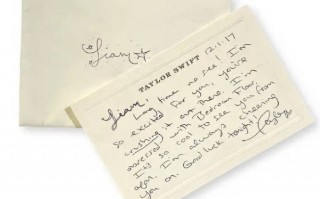 Liam
TAYLOR SWIFT
12.1.17
Liam,
Long time no see! I'm
so excited for you, you're
crushing it out there. I'm
obsessed with Bedroom Floor,
It's so cool to see you from
afar. I'm always cheering
you on. Good luck tonight!
Taylor